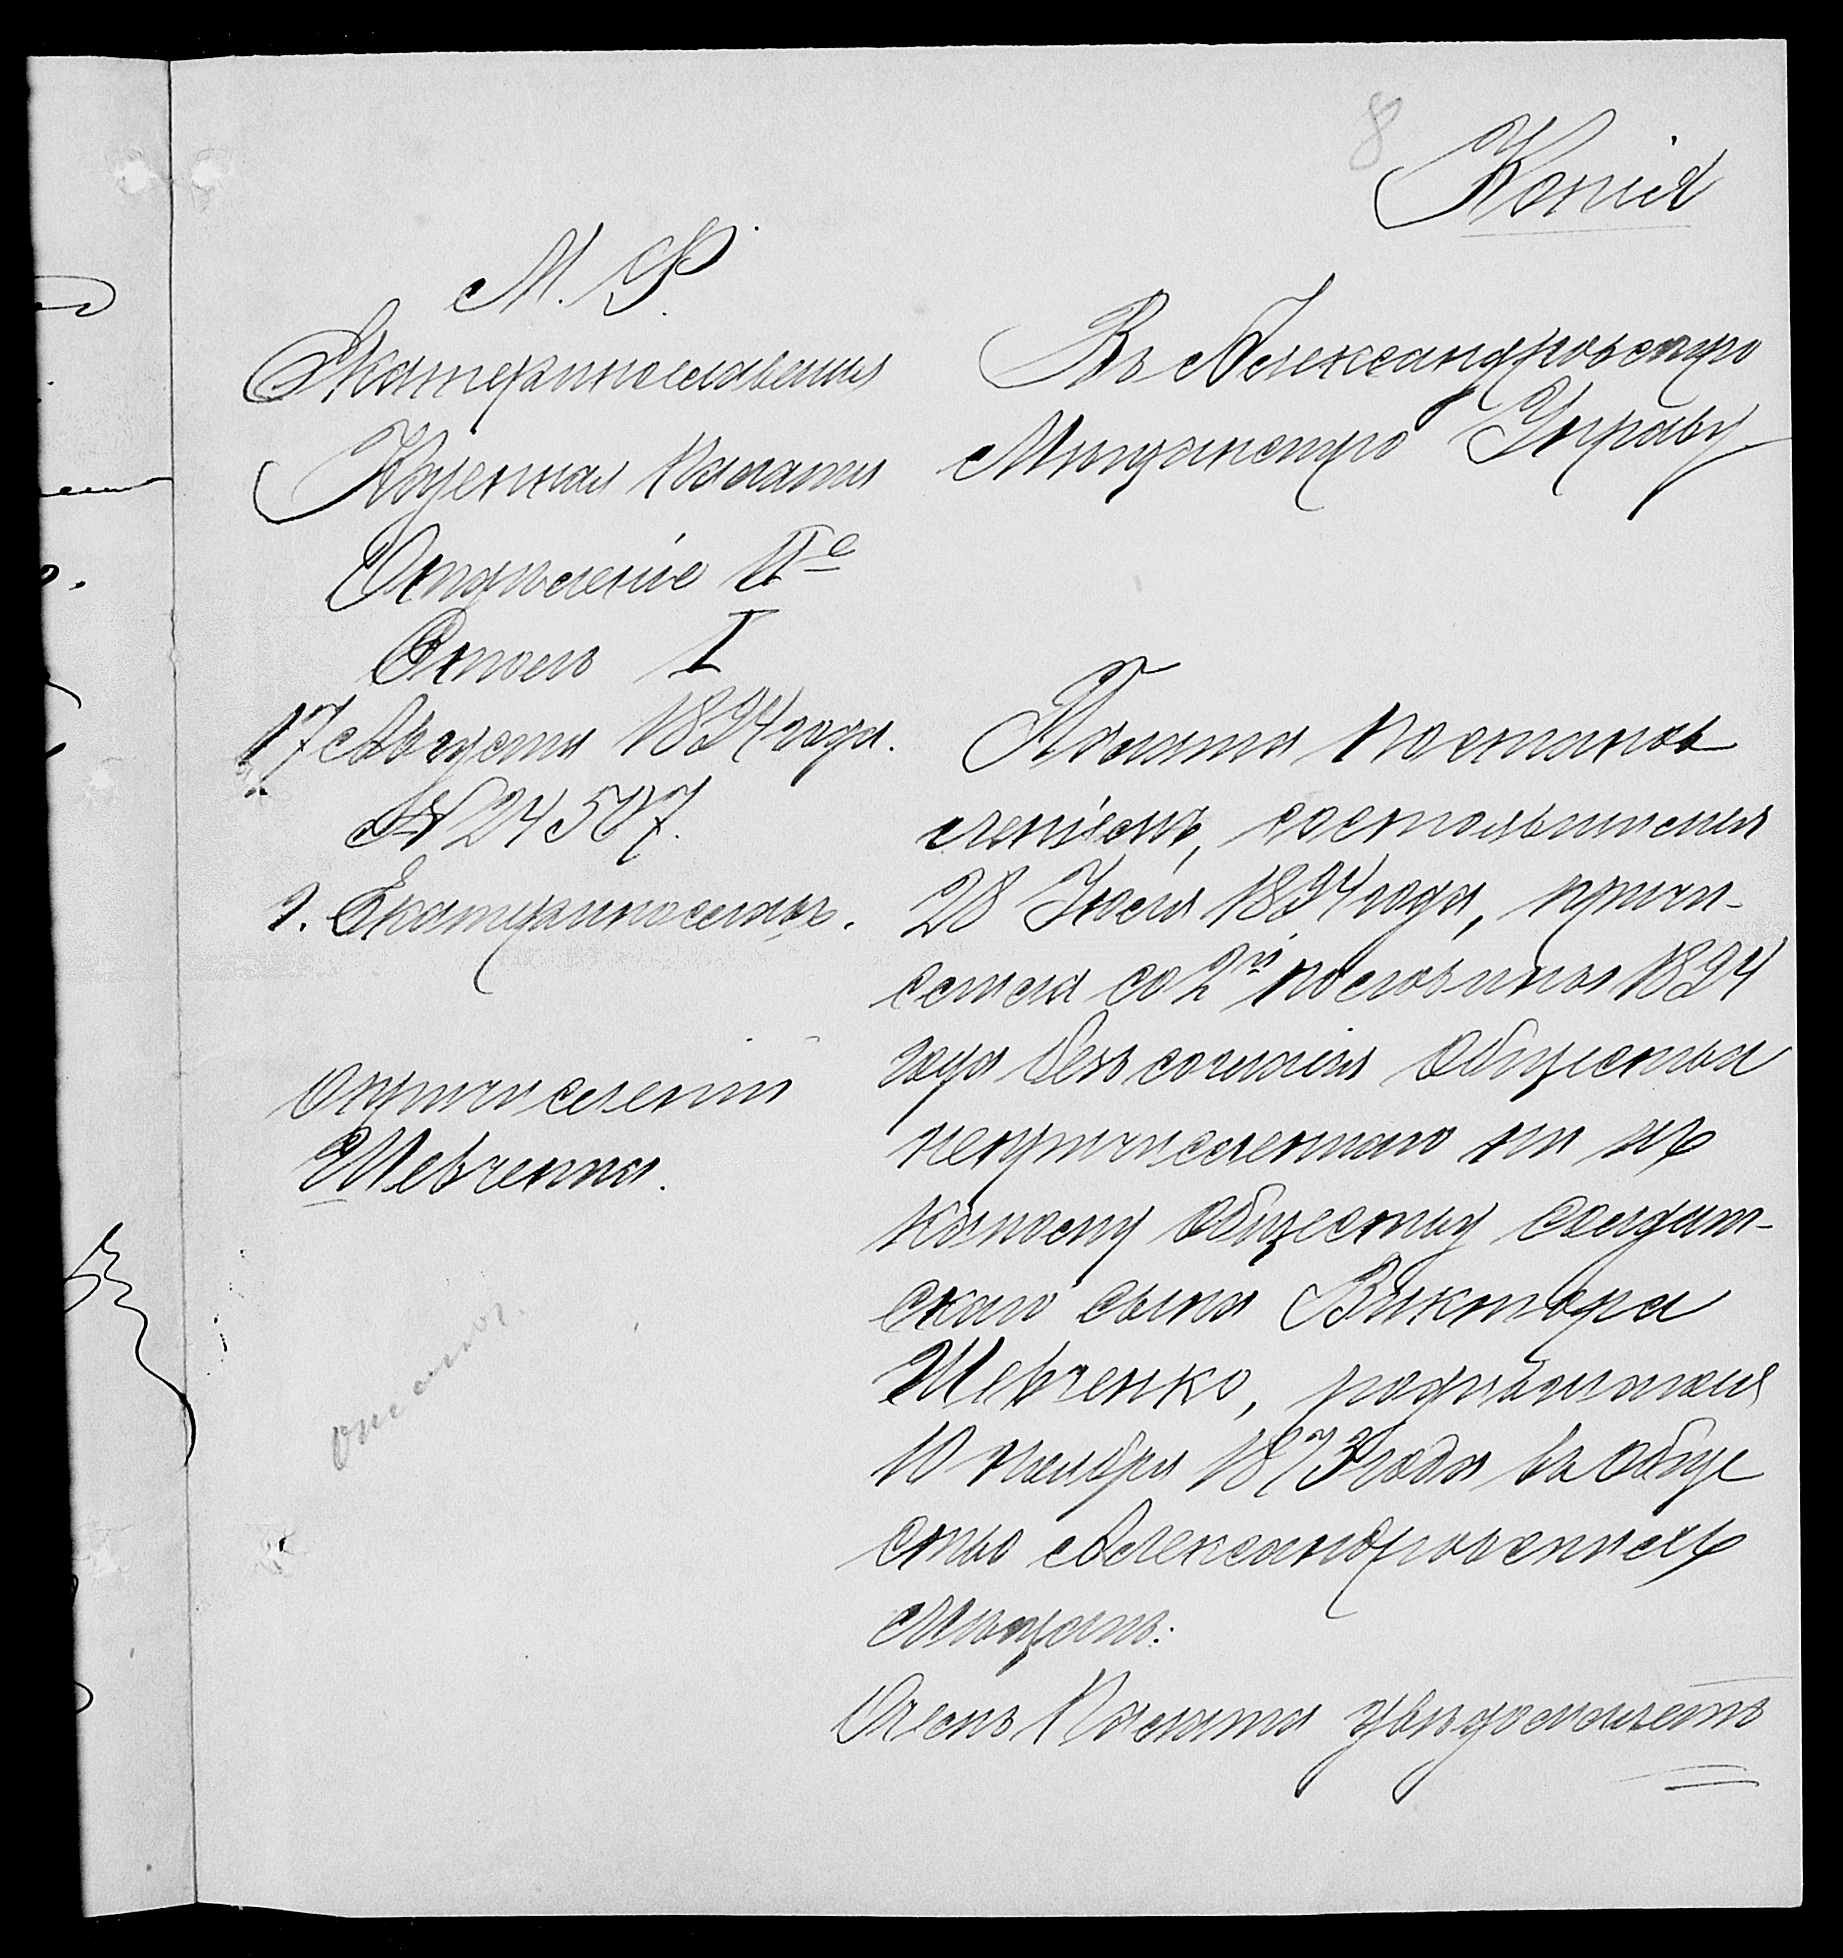 8
Копія
М. Ф.
Екатеринославская
Казенная Палата
Отдѣленіе IIе
Столъ I
17 Августа 1894 года.
№ 24507.
г. Екатеринославъ.
О причисленіи
Шевченка.
Въ Александровскую
Мѣщанскую Управу
Палата постанов
леніемъ, состоявшимся
28 Іюля 1894 года, причи-
слила со 2й половины 1894
года безъ согласія общества
непричисленнаго ни къ
какому обществу солдат-
скаго сына Виктора
Шевченко, родившагося
10 Ноября 1873 года въ обще
ство Александровскихъ
Мѣщанъ.
О чемъ Палата увѣдомляетъ